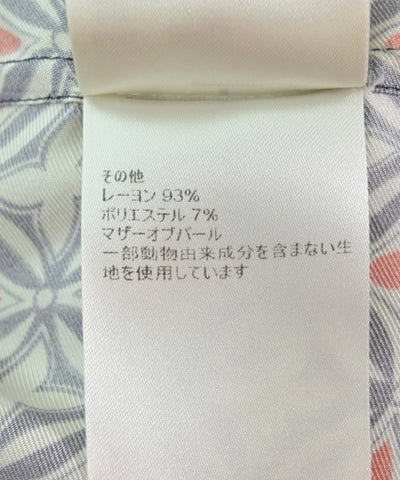 その他
レーヨン 93%
ポリエステル 7%
マザーオブパール
一部動物由来成分を含まない生
地を使用しています